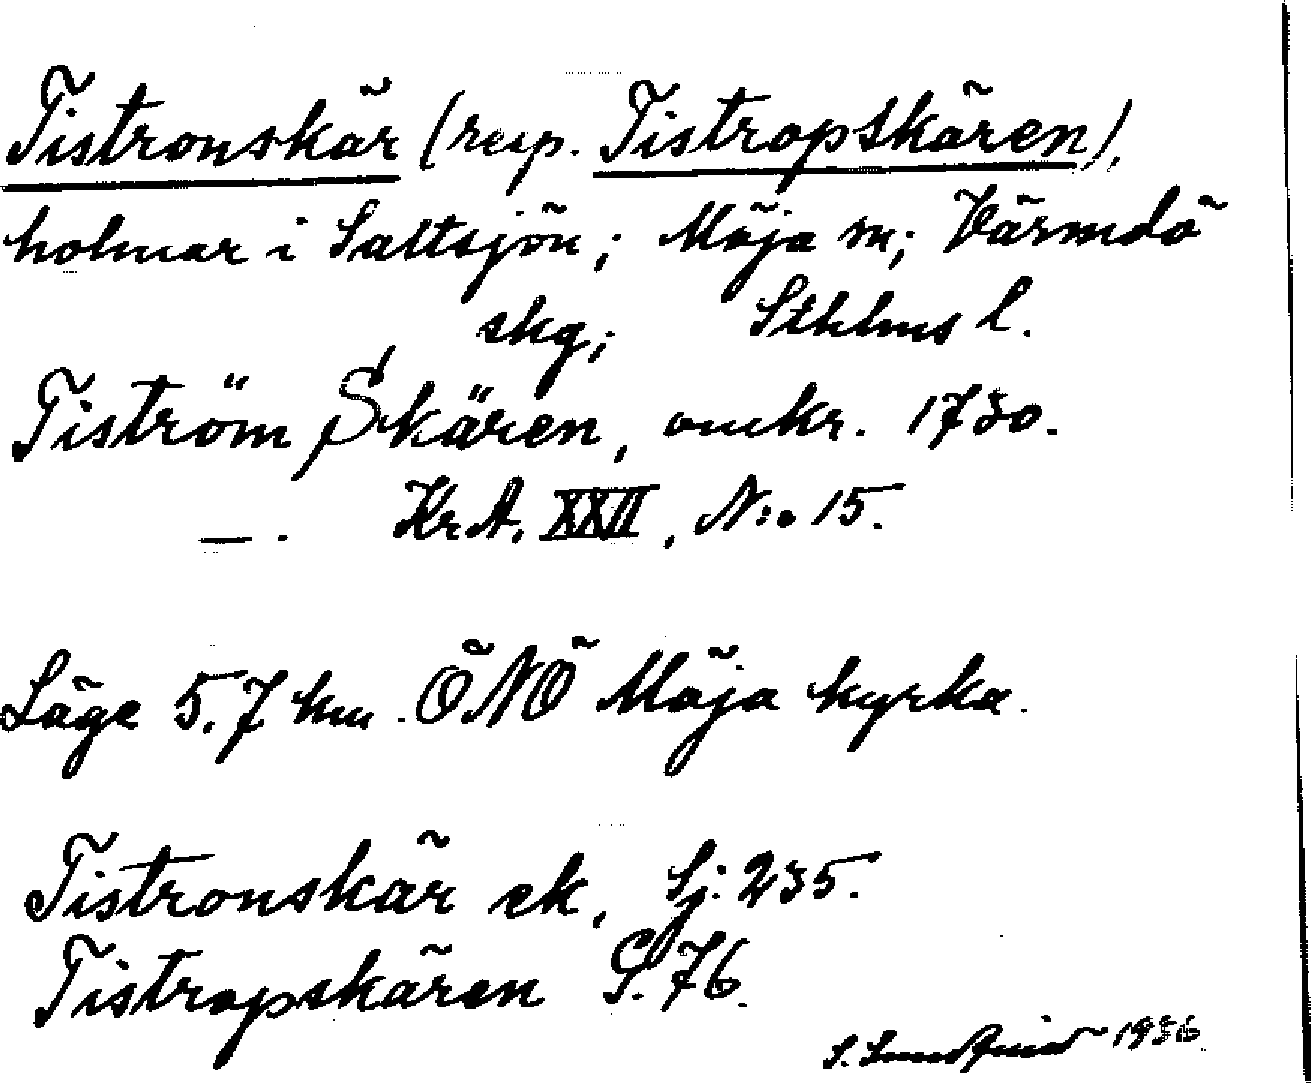 Tistronskär (resp. Tistropskären),
holmar i Saltsjön; Möja sn; Värmdö
skg; Sthlms l.
Tiström Skären, omkr. 1730.
—. Kr.A. XXII, N:o 15.
Läge 5.7 km. ÖNÖ Möja kyrka.
Tistronskär ek, Sj: 235.
Tistropskären S. 76.
S. 1936